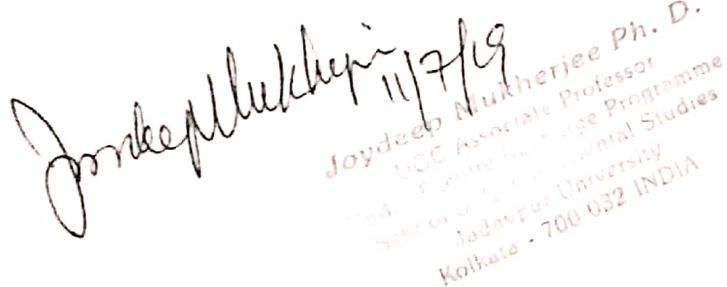 Joydeep Mukherjee 11/7/19
Joydeep Mukherjee Ph. D.
UGC Associate Professor
Programme
School of Environmental Studies
Jadavpur University
Kolkata - 700 032 INDIA